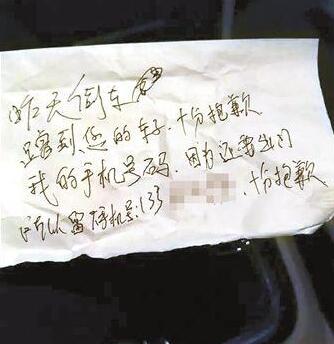 昨天倒车
蹭到您的车子.十分抱歉
我的手机号码.因为还要出门
所以留手机号:133 .十分抱歉